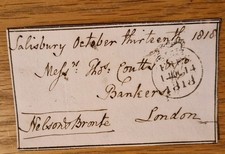 Salisbury October thirteenth 1818
Messrs. Thos. Coutts
Bankers
London
Nelson & Bronte
1818